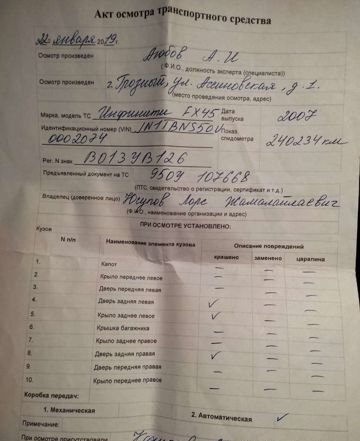 Акт осмотра транспортного средства
22 января 2019г.
Осмотр произведен Агюбов А. И
(Ф.И.О. должность эксперта (специалиста))
Осмотр произведен г. Грозный, ул. Ассиновская д. 1.
(место проведения осмотра, адрес)
Марка, модель ТС Инфинити FX45 Дата выпуска 2007
Идентификационный номер (VIN) JN1TBNS50U0002074 Показ. спидометра 240234 км
Рег. N знак В013УВ126
Предъявленный документ на ТС 950У 107668
(ПТС, свидетельство о регистрации, сертификат и т.д.)
Владелец (доверенное лицо) Юсупов Хорс Жамалайлаевич
(Ф.И.О., наименование организации и адрес)
ПРИ ОСМОТРЕ УСТАНОВЛЕНО:
Кузов
N п/п Наименование элемента кузова Описание повреждений
крашено заменено царапина
1. Капот — — —
2. Крыло переднее левое — — —
3. Дверь передняя левая — — —
4. Дверь задняя левая ✓ — —
5. Крыло заднее левое ✓ — —
6. Крышка багажника — — —
7. Крыло заднее правое — — —
8. Дверь задняя правая ✓ — —
9. Дверь передняя правая — — —
10. Крыло переднее правое — — —
Коробка передач:
1. Механическая 2. Автоматическая ✓
Примечание:
При осмотре присутствовали